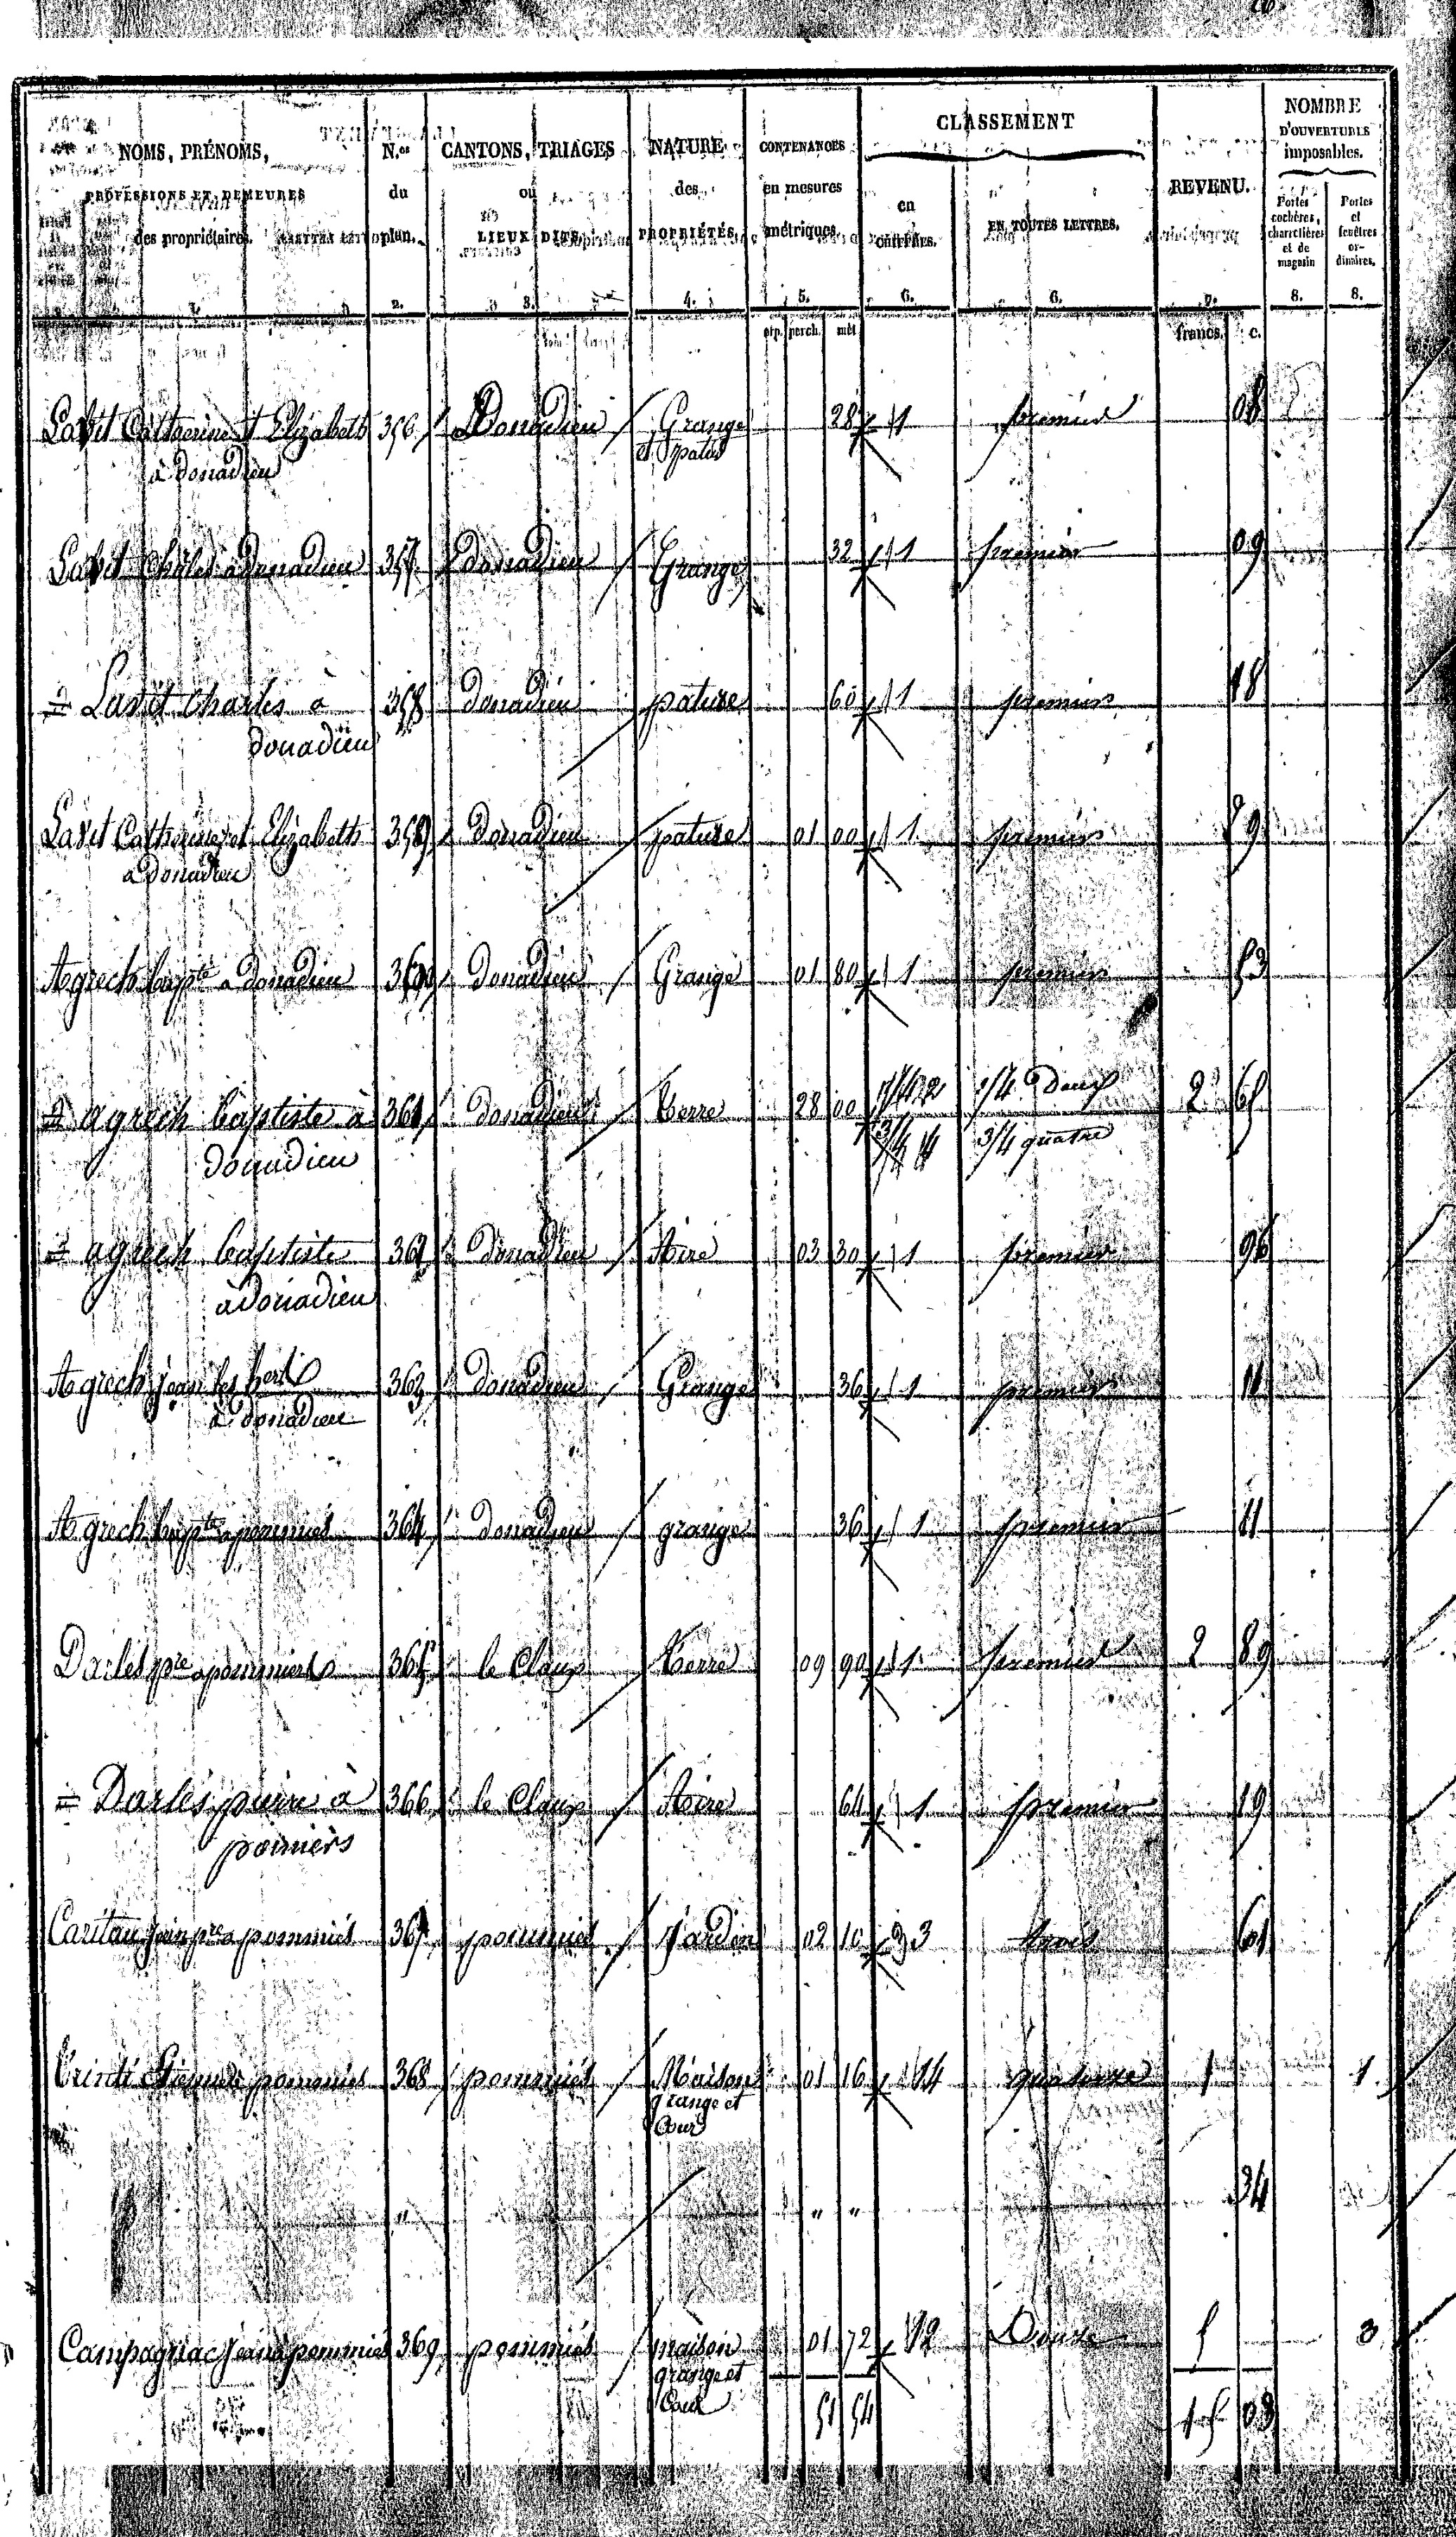 NOMS, PRÉNOMS, PROFESSIONS ET DEMEURES des propriétaires. N.os du plan. CANTONS, TRIAGES ou LIEUX DITS. NATURE des PROPRIÉTÉS. CONTENANCES en mesures métriques. CLASSEMENT en CHIFFRES. EN TOUTES LETTRES. REVENU. NOMBRE D'OUVERTURES imposables. Portes cochères, charretières et de magasin Portes et fenêtres ordinaires.
1. 2. 3. 4. 5. 6. 6. 7. 8. 8.
arp. perch. mèt francs. c.
Lavit Catherine et Elizabeth 356 Donadieu Grange 28 1 premier 08
à donadieu et patus
Lavit Charles à donadieu 357 donadieu Grange 32 1 premier 09
= Lavit Charles à 358 donadieu pature 60 1 premier 18
donadieu
Lavit Catherine et Elizabeth 359 donadieu pature 01 00 1 premier 29
a donadieu
Agrech bapte a donadieu 360 donadieu Grange 01 80 1 premier 53
= agrech baptiste à 361 donadieu terre 28 00 1/4 2 1/4 Deux 2 65
donadieu 3/4 4 3/4 quatre
= agrech baptiste 362 donadieu Aire 03 30 1 premier 96
à donadieu
Agrech jean les hers 363 donadieu Grange 36 1 premier 11
à donadieu
Agrech bapte a pommiés 364 donadieu grange 36 1 premier 11
Darles pre a pommiers 365 le Claux terre 09 90 1 premier 2 89
= Darlés pierre à 366 le Claux Aire 64 1 premier 19
pomiers
Caritau jean pre a pommiés 367 pommiés Jardin 02 10 3 3 trois 61
368 pommiés Maison 01 16 14 quatorze 1 1
grange et
Cour
" " " 34
Campagnac Jean a pommiés 369 pommiés maison 01 72 12 Douze 5 3
grange et
Cour 51 54 15 03